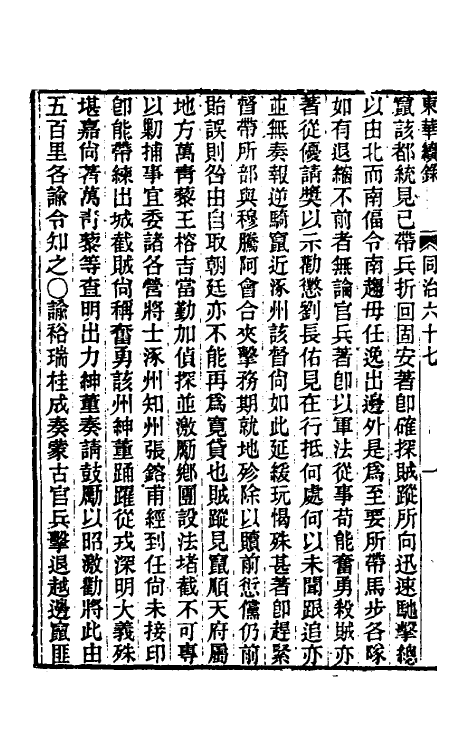 東華續錄 同治六十七 一
竄該都統見已帶兵折回固安著卽確探賊蹤所向迅速馳擊總
以由北而南偪令南趨毋任逸出邊外是爲至要所帶馬步各隊
如有退縮不前者無論官兵著卽以軍法從事苟能奮勇殺賊亦
著從優請獎以示勸懲劉長佑見在行抵何處何以未聞跟追亦
並無奏報逆騎竄近涿州該督尙如此延緩玩愒殊甚著卽趕緊
督帶所部與穆騰阿會合夾擊務期就地殄除以贖前愆儻仍前
貽誤則咎由自取朝廷亦不能再爲寬貸也賊蹤見竄順天府屬
地方萬靑藜王榕吉當勤加偵探並激勵鄉團設法堵截不可專
以勦捕事宜委諸各營將士涿州知州張鎔甫經到任尙未接印
卽能帶練出城截賊尙稱奮勇該州紳董踊躍從戎深明大義殊
堪嘉尙著萬靑藜等查明出力紳董奏請鼓勵以昭激勸將此由
五百里各諭令知之〇諭裕瑞桂成奏蒙古官兵擊退越邊竄匪